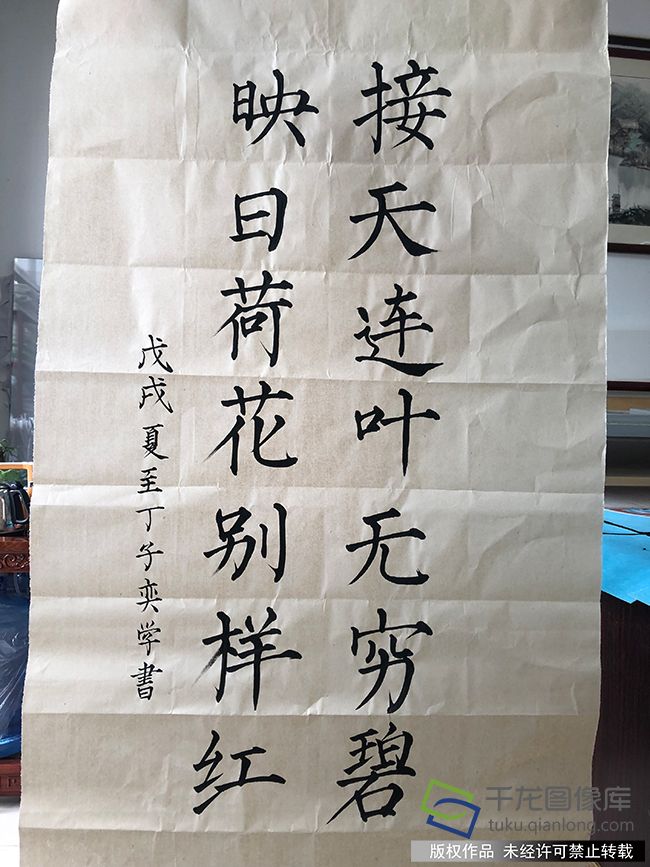 接天连叶无穷碧
映日荷花别样红
戊戌夏至丁子奕学書
千龙图像库
tuku.qianlong.com
版权作品 未经许可禁止转载